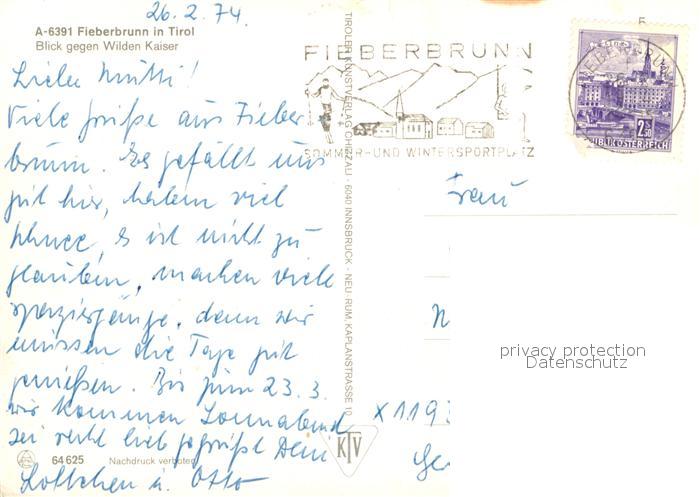 26.2.74.
A-6391 Fieberbrunn in Tirol
Blick gegen Wilden Kaiser
Liebe Mutti!
Viele Grüße aus Fieber
brunn. Es gefällt uns
gut hier, haben viel
Schnee, es ist nicht zu
glauben, machen viele
Spaziergänge, denn wir
müssen die Tage gut
genießen. Bis zum 23.3.
wir kommen Sonnabend
sei recht lieb gegrüßt Dein
Lottchen u. Otto
64625 Nachdruck verboten
TIROLER KUNSTVERLAG CHIZZALI · 6040 INNSBRUCK - NEU RUM, KAPLANSTRASSE 10
KTV
FIEBERBRUNN
SOMMER-UND WINTERSPORTPLATZ
2.50
REPUBLIK ÖSTERREICH
Frau
N
X 1193
Ge
privacy protection
Datenschutz